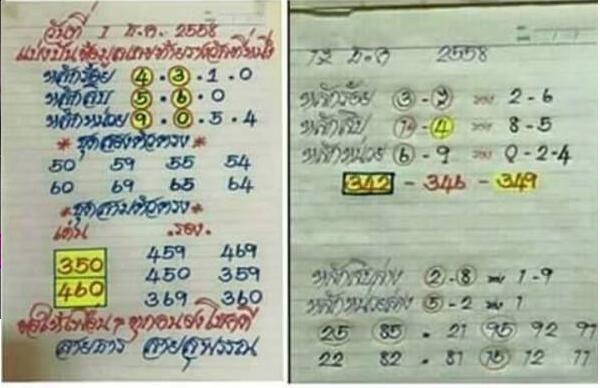 วันที่ 1 ธ.ค. 2558
หลักร้อย 4 . 3 . 1 . 0
หลักสิบ 5 . 6 . 0
หลักหน่วย 9 . 0 . 5 . 4
* ชุดสองตัวตรง *
50 59 55 54
60 69 65 64
* ชุดสามตัวตรง *
เด่น .รอง.
350 459 469
460 450 359
369 360
ขอให้เพื่อนๆ ทุกคนจงโชคดี
สายธาร สายสุพรรณ
12 ธ.ค 2558
หลักร้อย 3 - 7 รอง 2 - 6
หลักสิบ 4 รอง 8 - 5
หลักหน่วย 6 - 9 รอง 0 - 2 - 4
342 - 346 - 349
หลักสิบล่าง 2 - 8 1 - 9
หลักหน่วยล่าง 5 - 2 1
25 85 . 21 95 92 97
22 82 . 81 75 72 77